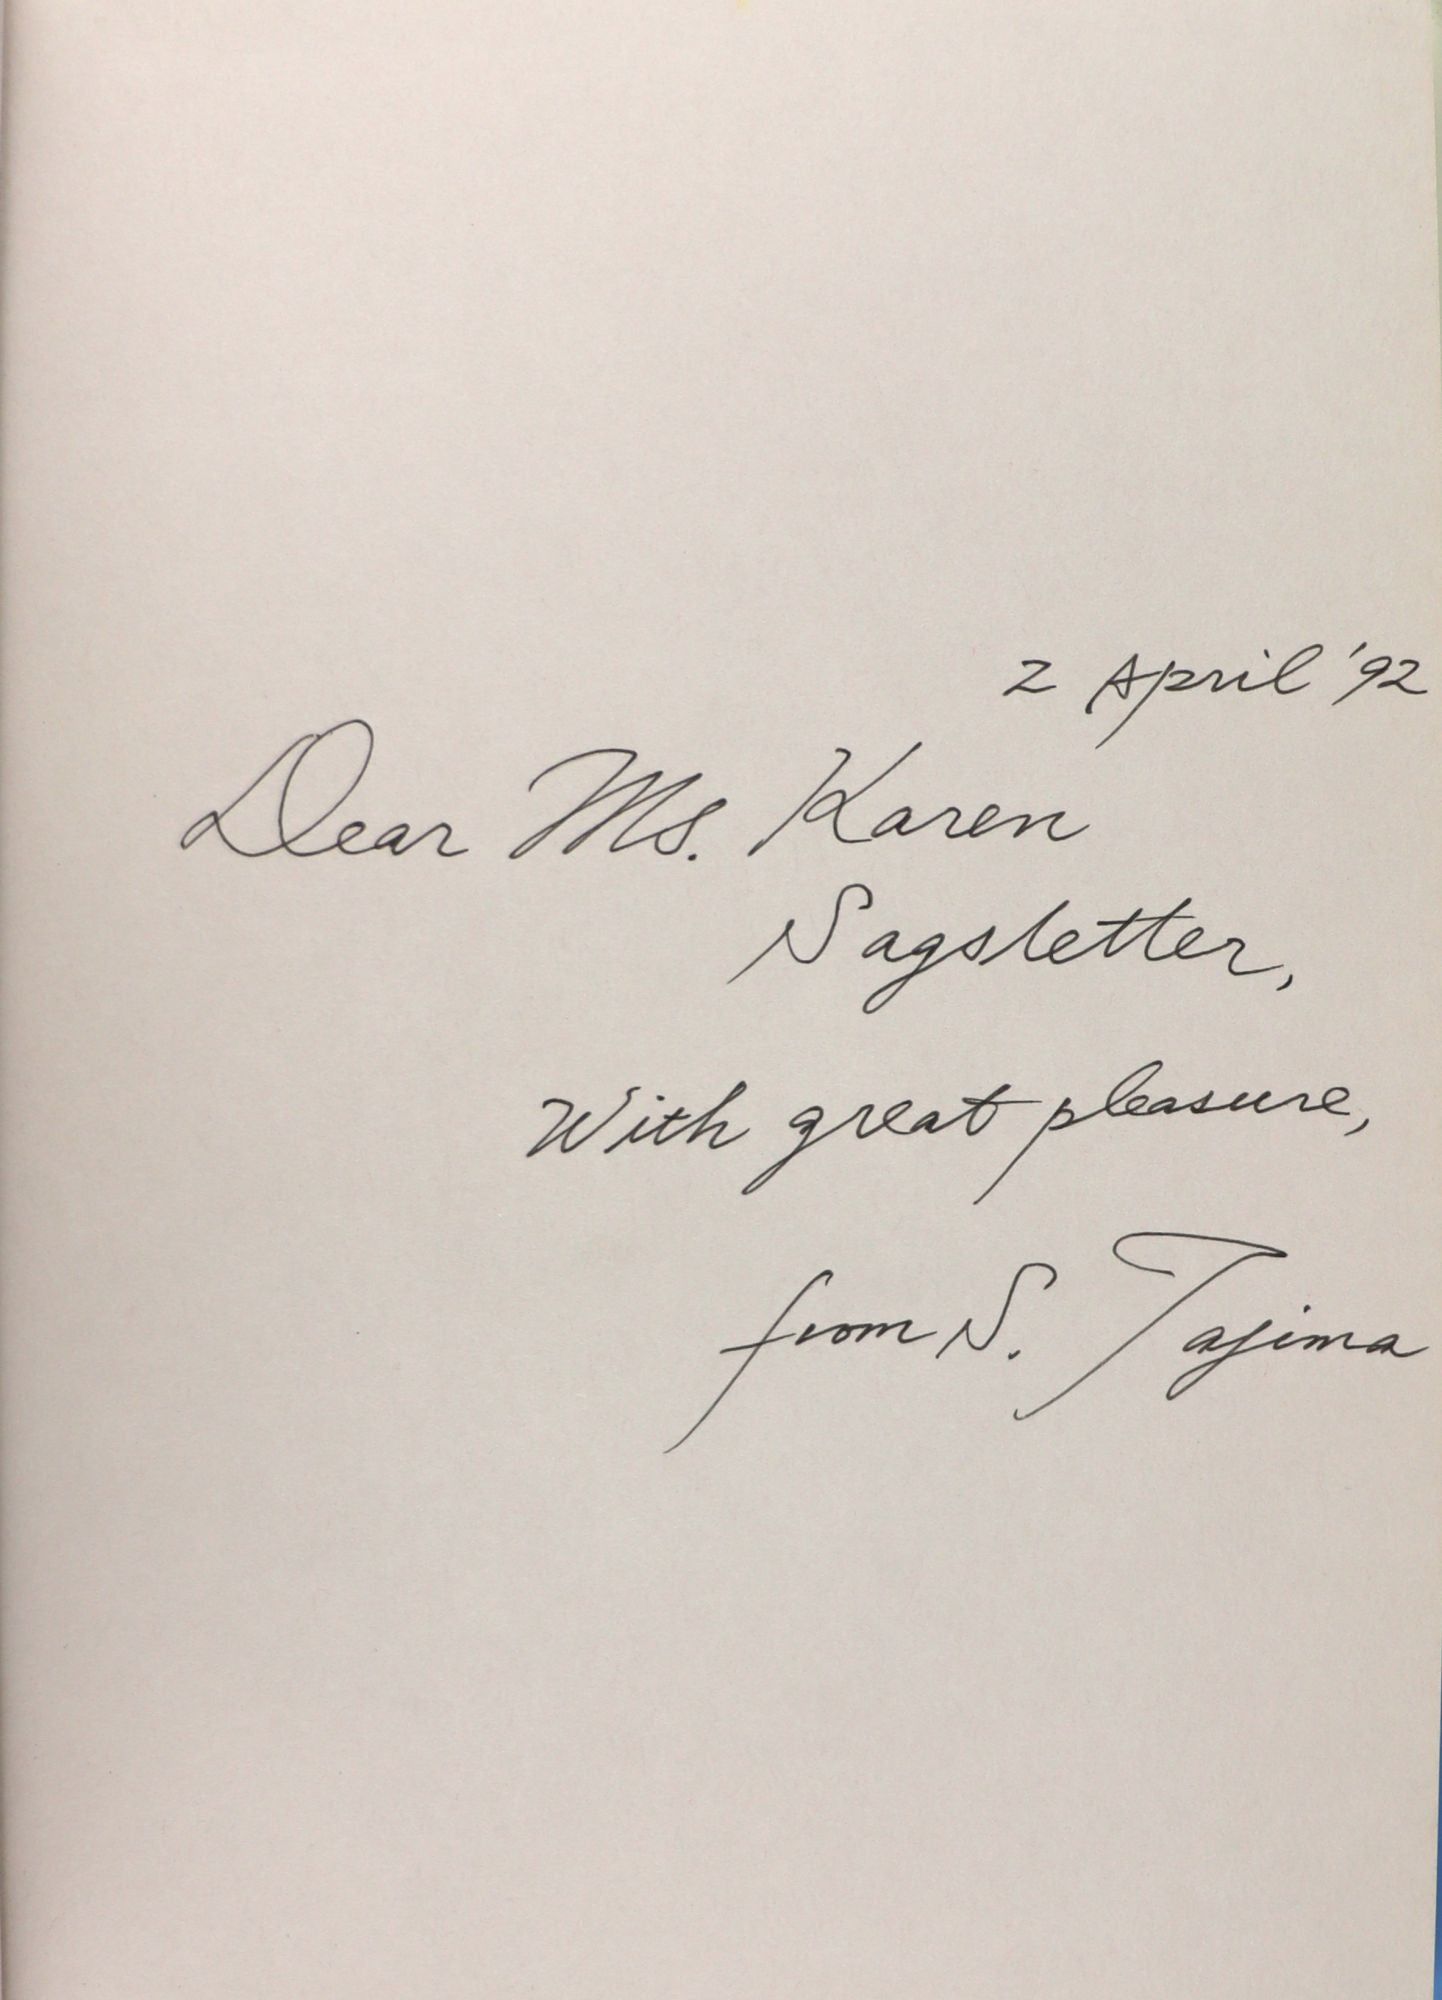 2 April '92
Dear Ms. Karen
Sagstetter,
With great pleasure,
from S. Tajima